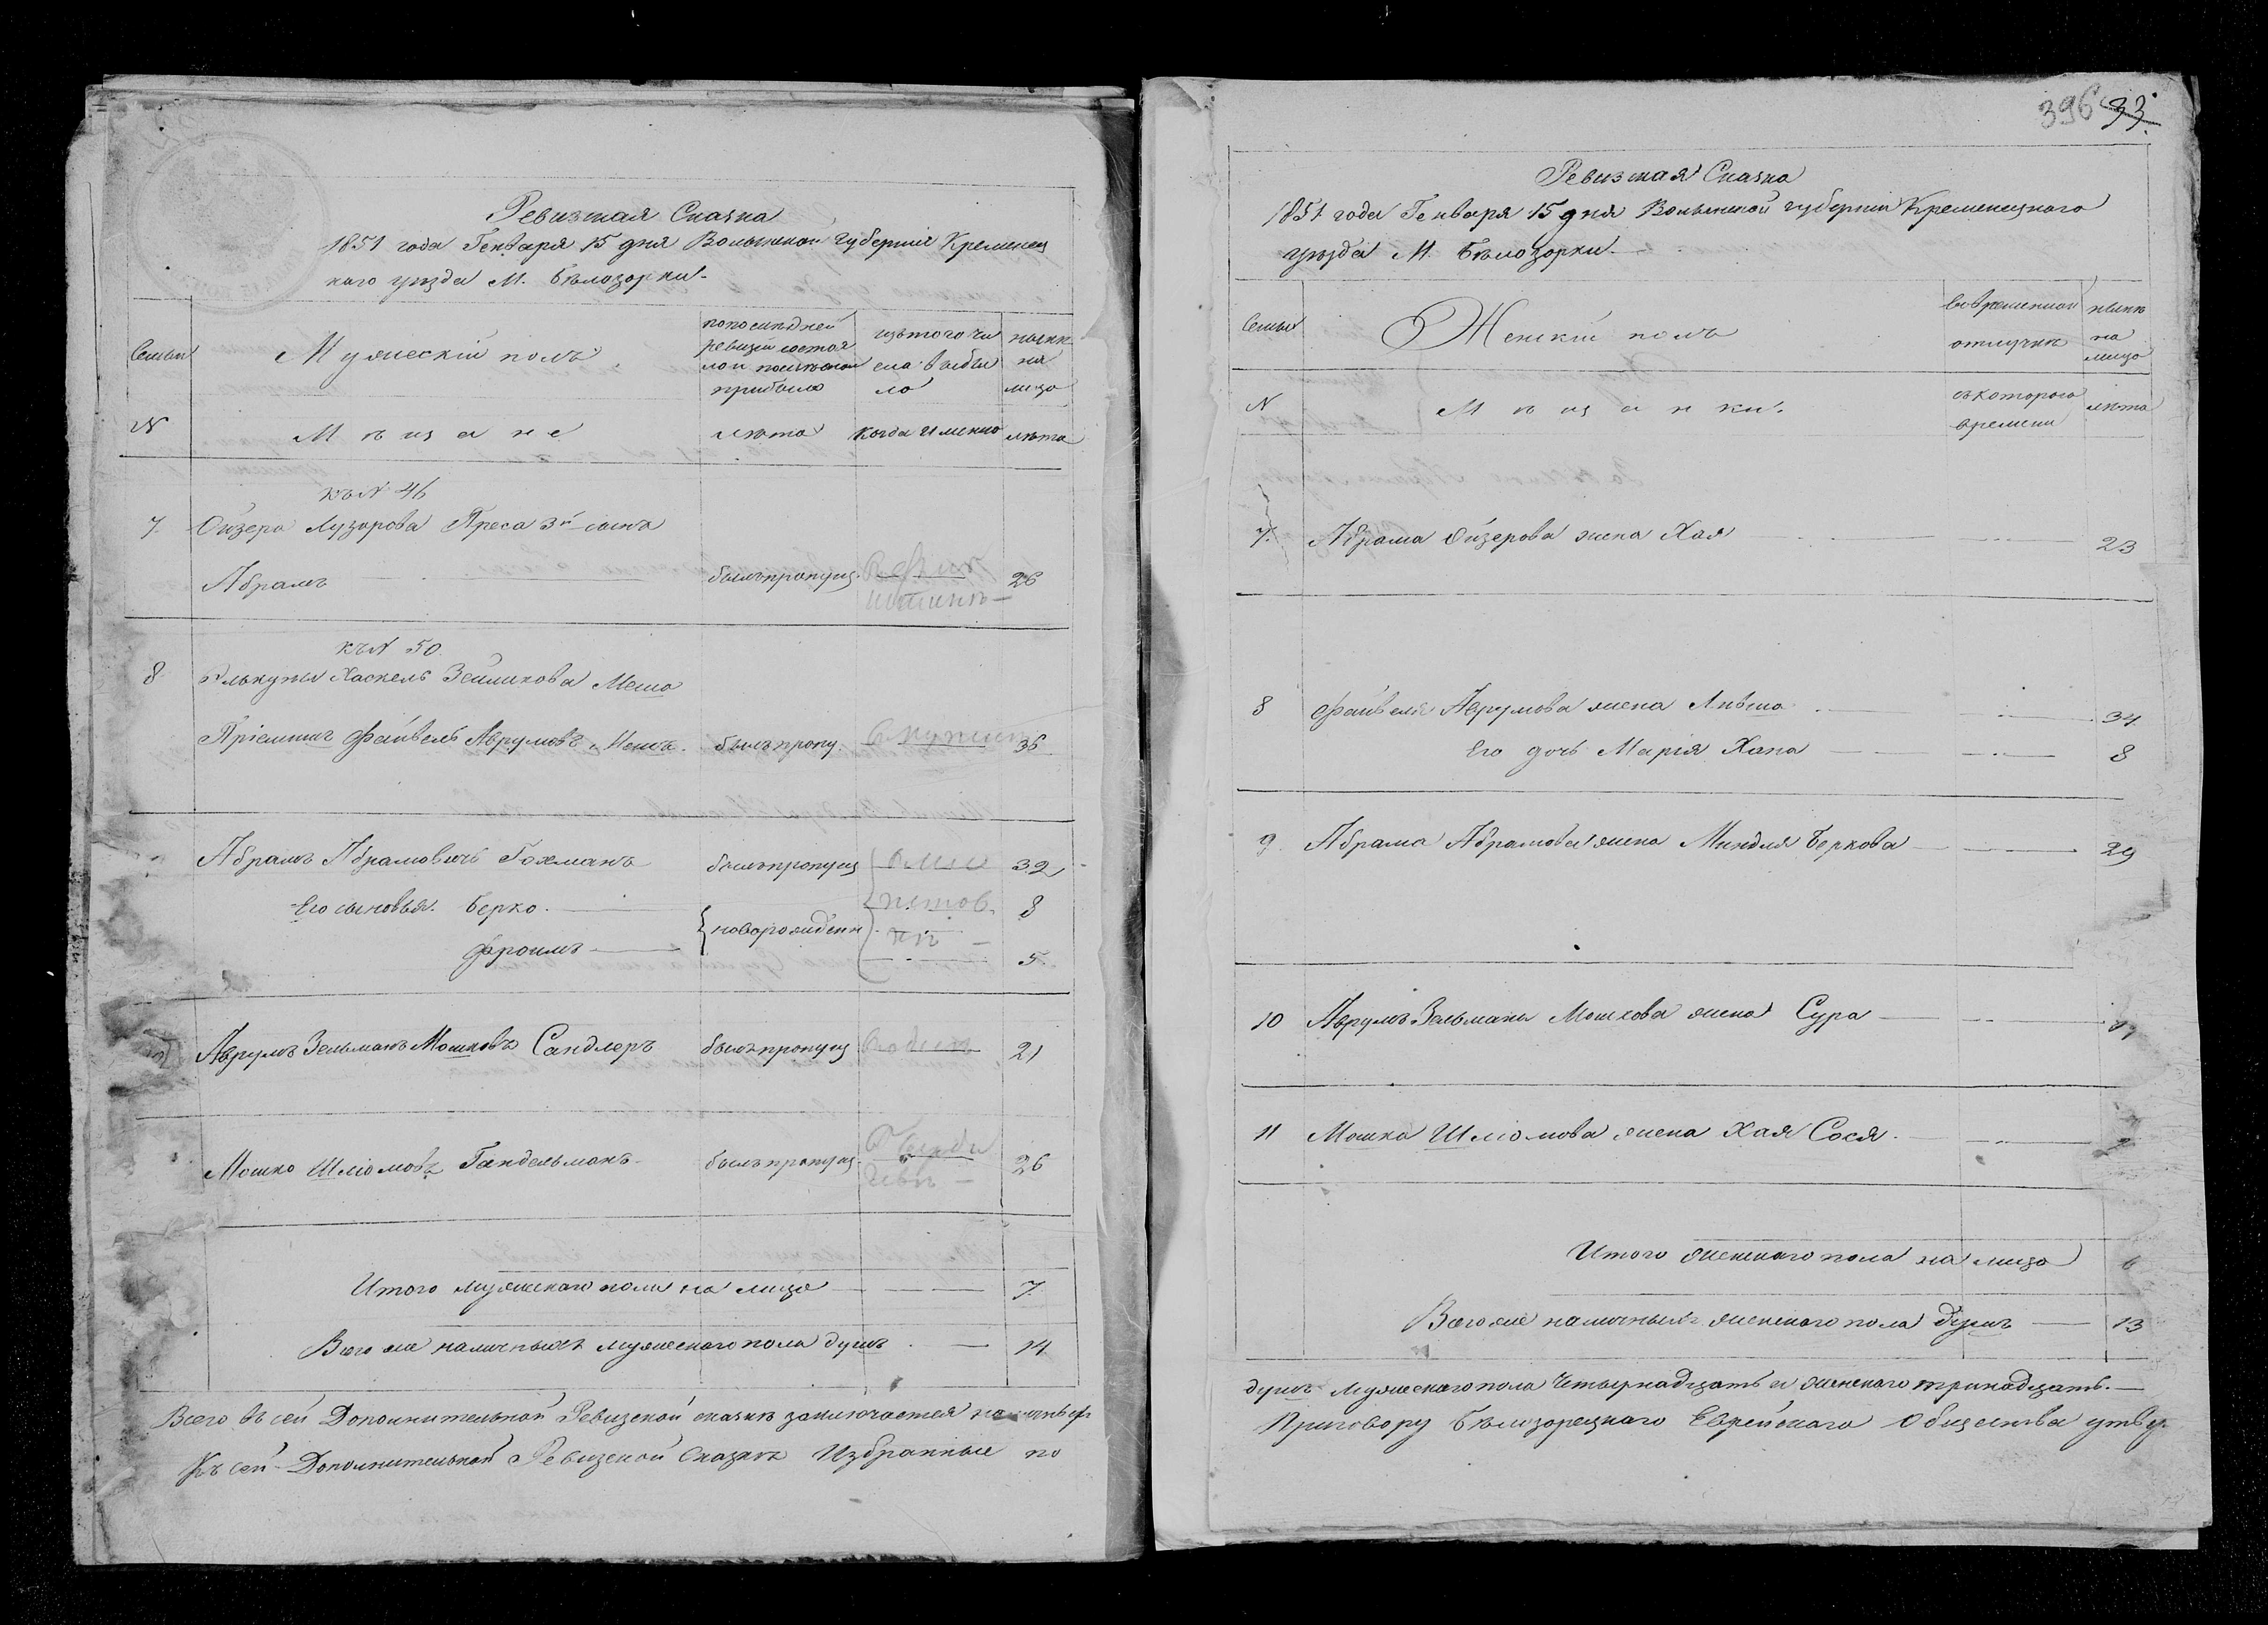 Ревизская Сказка
1851 года Генваря 15 дня Волынской Губернии Кременец
каго уезда М. Бѣлозорки.
Семьи
Мужескій полъ
по последней ревизіи состояло и после оной прибыло
изъ того числа выбыло
нынѣ на лицо
N
Мѣщане
лѣта
когда именно
лѣта
къ N 46
7. Ойзера Лузарова Преса 3й сынъ
Абрамъ был пропущ. 26
къ N 50.
8 Элькуны Хаскель Зейликова Меша
Пріемыш Файвель Аврумовъ Мешъ. был пропу. 36
Абрамъ Абрамовичъ Гохманъ был пропущ 32
Его сыновья. Берко. 8
новорожденн
Фроимъ 5.
Аврумъ Зельманъ Мошковъ Сандлеръ был пропущ 21
Мошко Шліомовъ Гандельманъ был пропущ. 26
Итого мужескаго пола на лицо 7.
Всего же наличныхъ мужескаго пола душъ 14
Всего въ сей Дополнительной Ревизской сказкѣ заключается наличныхъ
Къ сей Дополнительной Ревизской Сказкѣ Избранные по
396 33.
Ревизская Сказка
1851 года Генваря 15 дня Волынской губерніи Кременецкаго
уѣзда М. Бѣлозорки.
Семьи
Женскій полъ
во временной отлучкѣ
нынѣ на лицо
N
Мѣщанки.
съ котораго времени
лѣта
7. Абрама Ойзерова жена Хая 23
8 Файвеля Аврумова жена Ливша 34
Его дочь Марія Хана 8
9. Абрама Абрамова жена Миндля Беркова 29
10 Аврумъ Зельмана Мошкова жена Сура
11 Мошка Шліомова жена Хая Сося.
Итого женскаго пола на лицо 6
Всего же наличныхъ женскаго пола душъ 13
душъ мужескаго пола четырнадцать и женскаго тринадцать.
Приговору Бѣлозорецкаго Еврейскаго Общества утвер